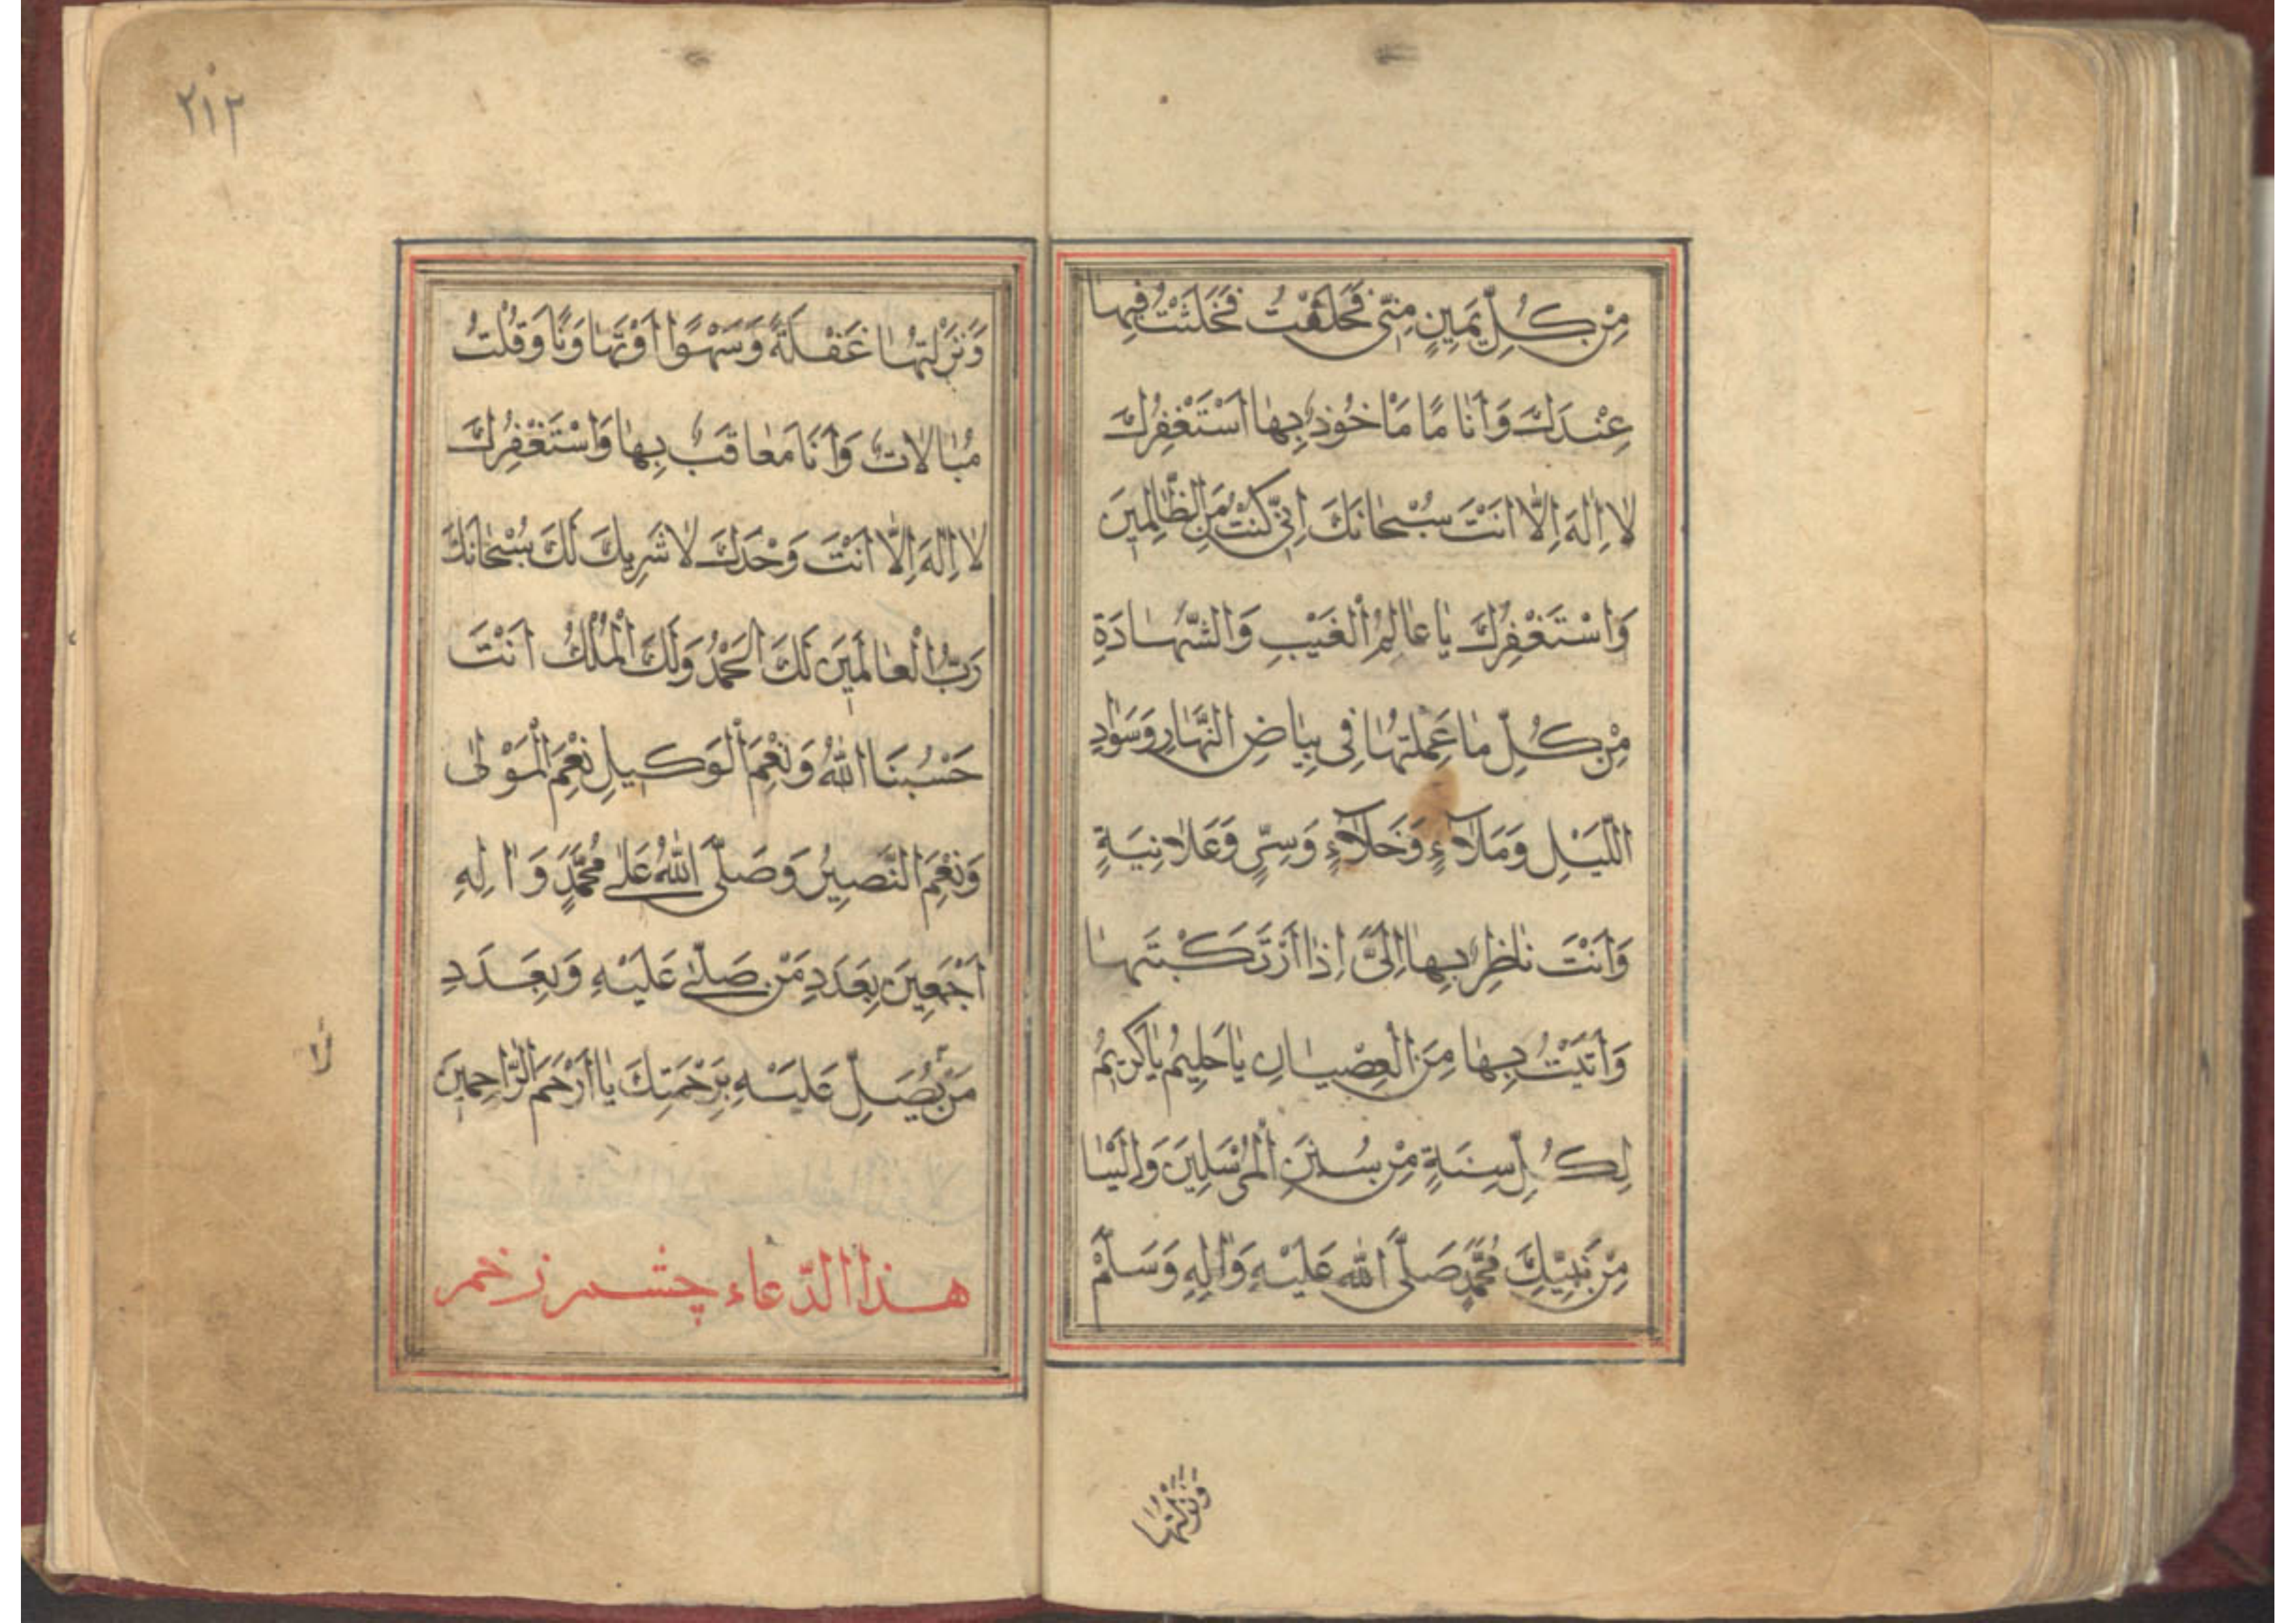 مِنْ كُلِّ يَمِينٍ مِنّى فَحَلَفْتُ فَحَنَثْتُ فِيهٰا
عِنْدَكَ وَاَنَا مٰا مَاْخُوذٌ بِهٰا اَسْتَغْفِرُكَ
لٰا اِلٰهَ اِلّٰا اَنْتَ سُبْحٰانَكَ اِنّى كُنْتُ مِنَ الظّٰالِمِينَ
وَاسْتَغْفِرُكَ يٰا عٰالِمُ الْغَيْبِ وَالشَّهٰادَةِ
مِنْ كُلِّ مٰا عَمِلْتُهٰا فِى بَيٰاضِ النَّهٰارِ وَسَوٰادِ
اللَّيْلِ وَمَلَاۤءٍ وَخَلَاۤءٍ وَسِرٍّ وَعَلٰانِيَةٍ
وَاَنْتَ نٰاظِرٌ بِهٰا اِلَىَّ اِذٰا ارْتَكَبْتَهٰا
وَاَتَيْتُ بِهٰا مِنَ الْعِصْيٰانِ يٰا حَلِيمُ يٰا كَرِيمُ
لِكُلِّ سِنَةٍ مِنْ سُنَنِ الْمُرْسَلِينَ وَاِلَيْنٰا
مِنْ نَبِيِّكَ مُحَمَّدٍ صَلَّى اللّٰهُ عَلَيْهِ وَاٰلِهِ وَسَلَّمْ
وَتَرَكْتُهٰا
٢١٢
وَتَرَكْتُهٰا غَفْلَةً وَسَهْوًا اَوْ تَهٰاوَنًا وَقُلْتُ
مُبٰالٰاتٌ وَاَنَا مَعٰاقَبٌ بِهٰا وَاسْتَغْفِرُكَ
لٰا اِلٰهَ اِلّٰا اَنْتَ وَحْدَكَ لٰا شَرِيكَ لَكَ سُبْحٰانَكَ
رَبُّ الْعٰالَمِينَ لَكَ الْحَمْدُ وَلَكَ الْمُلْكُ اَنْتَ
حَسْبُنَا اللّٰهُ وَنِعْمَ الْوَكِيلِ نِعْمَ الْمَوْلٰى
وَنِعْمَ النَّصِيرُ وَصَلَّى اللّٰهُ عَلٰى مُحَمَّدٍ وَاٰلِهِ
اَجْمَعِينَ بِعَدَدِ مَنْ صَلّٰى عَلَيْهِ وَبِعَدَدِ
مَنْ يُصَلِّ عَلَيْهِ بِرَحْمَتِكَ يٰا اَرْحَمَ الرّٰاحِمِينَ
هذا الدّعاء چشم زخم